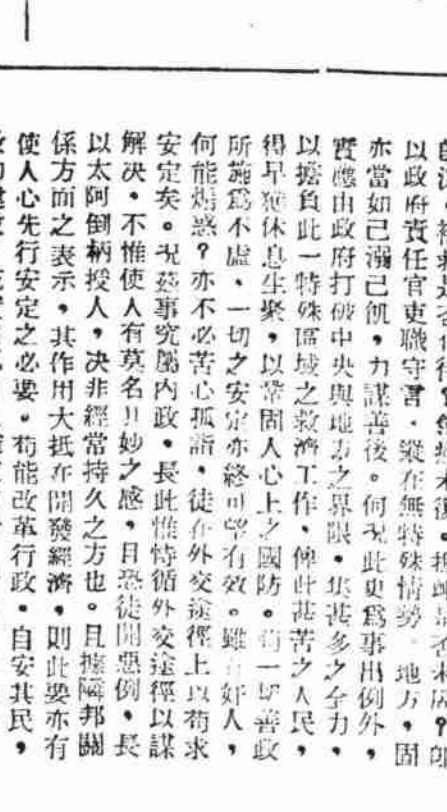 以政府責任官吏職守言，縱在無特殊情勢地方，固
亦當如己溺己飢，力謀善後。何况此更爲事出例外，
實應由政府打破中央與地方之界限，集甚多之全力，
以擔負此一特殊區域之救濟工作，俾此甚苦之人民，
得早獲休息生聚，以鞏固人心上之國防。苟一切善政
所施爲不虛，一切之安定亦終可望有效。雖有奸人，
何能煽惑？亦不必苦心孤詣，徒在外交途徑上以苟求
安定矣。况茲事究屬内政，長此惟恃循外交途徑以謀
解决，不惟使人有莫名其妙之感，且恐徒開惡例，長
以太阿倒柄授人，决非經常持久之方也。且據隣邦關
係方面之表示，其作用大抵在開發經濟，則此要亦有
使人心先行安定之必要。苟能改革行政，自安其民，